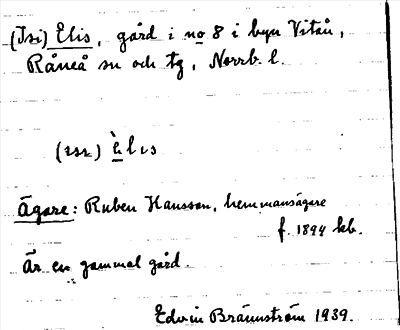 (Isi) Elis, gård i no 8 i byn Vitån,
Råneå sn och tg, Norrb. l.
èlɩs
Ägare: Ruben Hansson, hemmansägare
f. 1894 kb.
Är en gammal gård.
Edvin Brännström 1939.